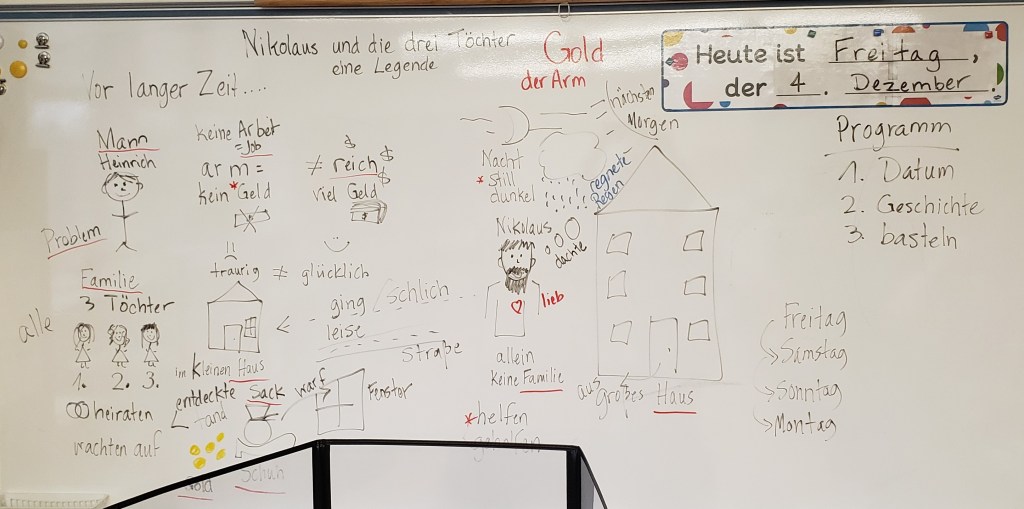 Nikolaus und die drei Töchter
eine Legende
Gold
der Arm
Heute ist Freitag,
der 4. Dezember.
Vor langer Zeit....
Mann
Heinrich
Problem
Keine Arbeit
=Job
arm =
kein *Geld
≠ reich
$ $ $
viel Geld
traurig ≠ glücklich
Familie
3 Töchter
alle
1. 2. 3.
heiraten
wachten auf
im kleinen Haus
ging
schlich
leise
Straße
entdeckte Sack warf
fand
Fenster
Schuh
nächsten
Morgen
Nacht
*Still
dunkel
regnete
Regen
Nikolaus
dachte
lieb
allein
keine Familie
*helfen
aus
großes Haus
Programm
1. Datum
2. Geschichte
3. basteln
Freitag
Samstag
Sonntag
Montag